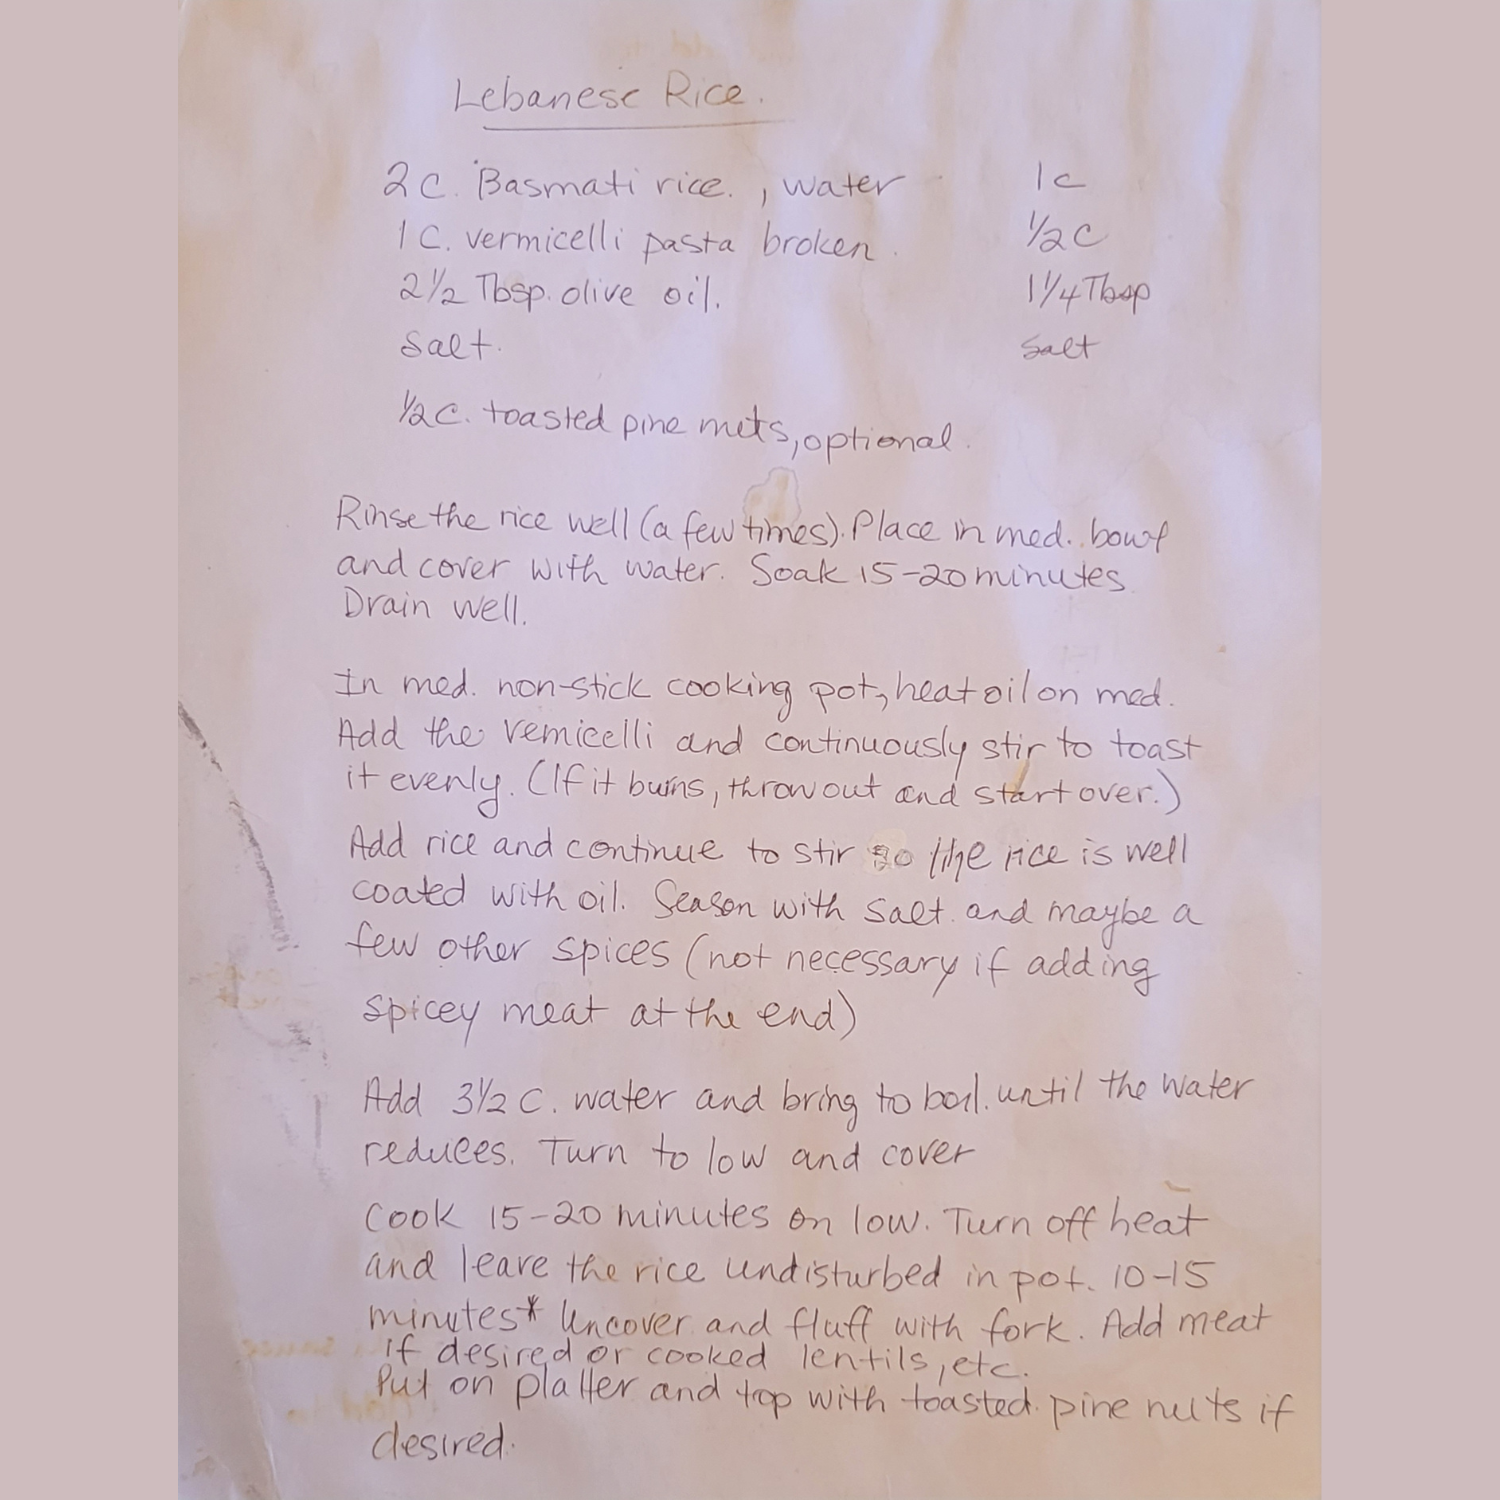 Lebanese Rice.
2 C. Basmati rice. , water 1 c
1 C. vermicelli pasta broken. 1/2 C
2 1/2 Tbsp. olive oil. 1 1/4 Tbsp
Salt. Salt
1/2 C. toasted pine nuts, optional.
Rinse the rice well (a few times). Place in med. bowl
and cover with water. Soak 15-20 minutes.
Drain well.
In med. non-stick cooking pot, heat oil on med.
Add the vemicelli and continuously stir to toast
it evenly. (If it burns, throw out and start over.)
Add rice and continue to stir so the rice is well
coated with oil. Season with salt. and maybe a
few other spices (not necessary if adding
spicey meat at the end)
Add 3 1/2 C. water and bring to boil. until the water
reduces. Turn to low and cover
Cook 15-20 minutes on low. Turn off heat
and leave the rice undisturbed in pot. 10-15
minutes* Uncover and fluff with fork. Add meat
if desired or cooked lentils, etc.
Put on platter and top with toasted pine nuts if
desired.